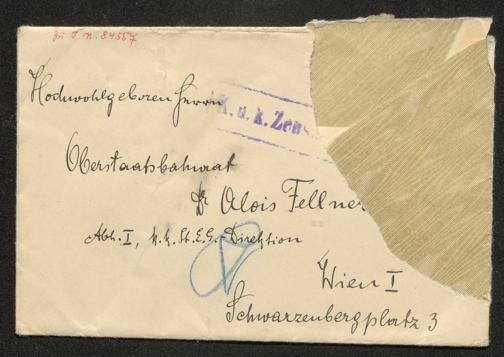 Zu I. N. 84557
Hochwohlgeboren Herrn
K. u. k. Zens
Oberstaatsbahnrat
Dr Alois Fellner
Abt. I, k. k. St. E. G. Direktion
Wien I
Schwarzenbergplatz 3